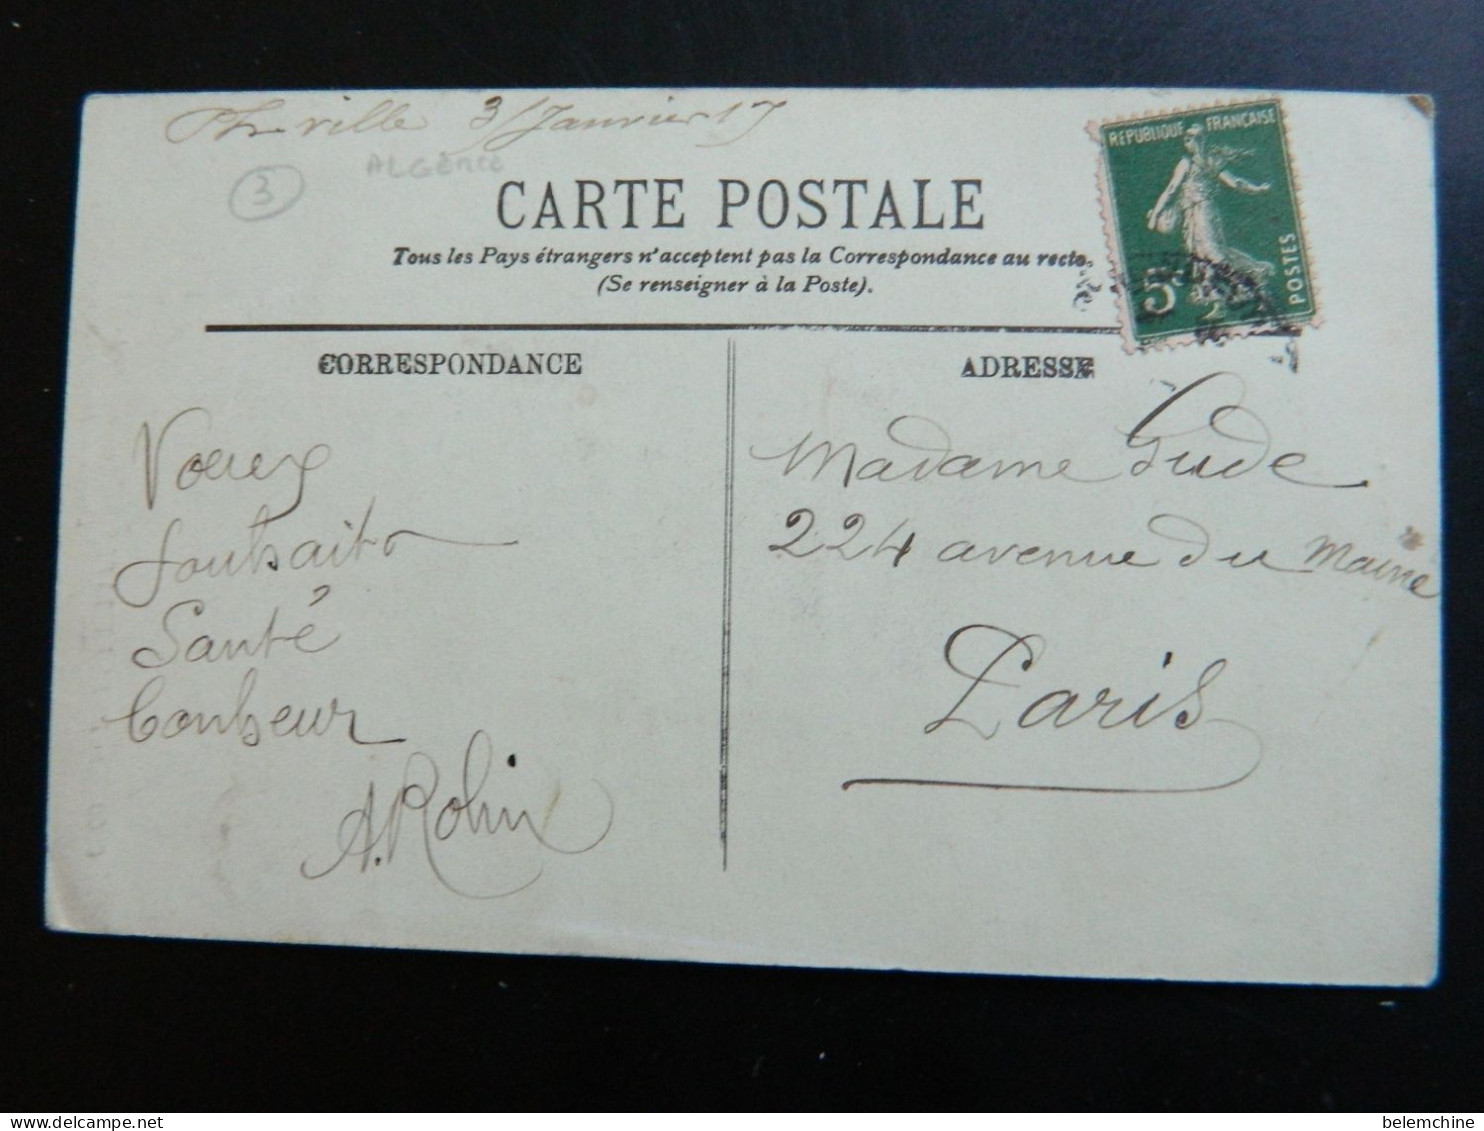 Ph-ville 3/Janvier 17
ALGÉRIE
3
CARTE POSTALE
Tous les Pays étrangers n'acceptent pas la Correspondance au recto.
(Se renseigner à la Poste).
REPUBLIQUE FRANÇAISE
5c
POSTES
CORRESPONDANCE
ADRESSE
Voeux
Souhaits
Santé
Bonheur
A. Robin
Madame Gude
224 avenue du Maine
Paris
belemchine